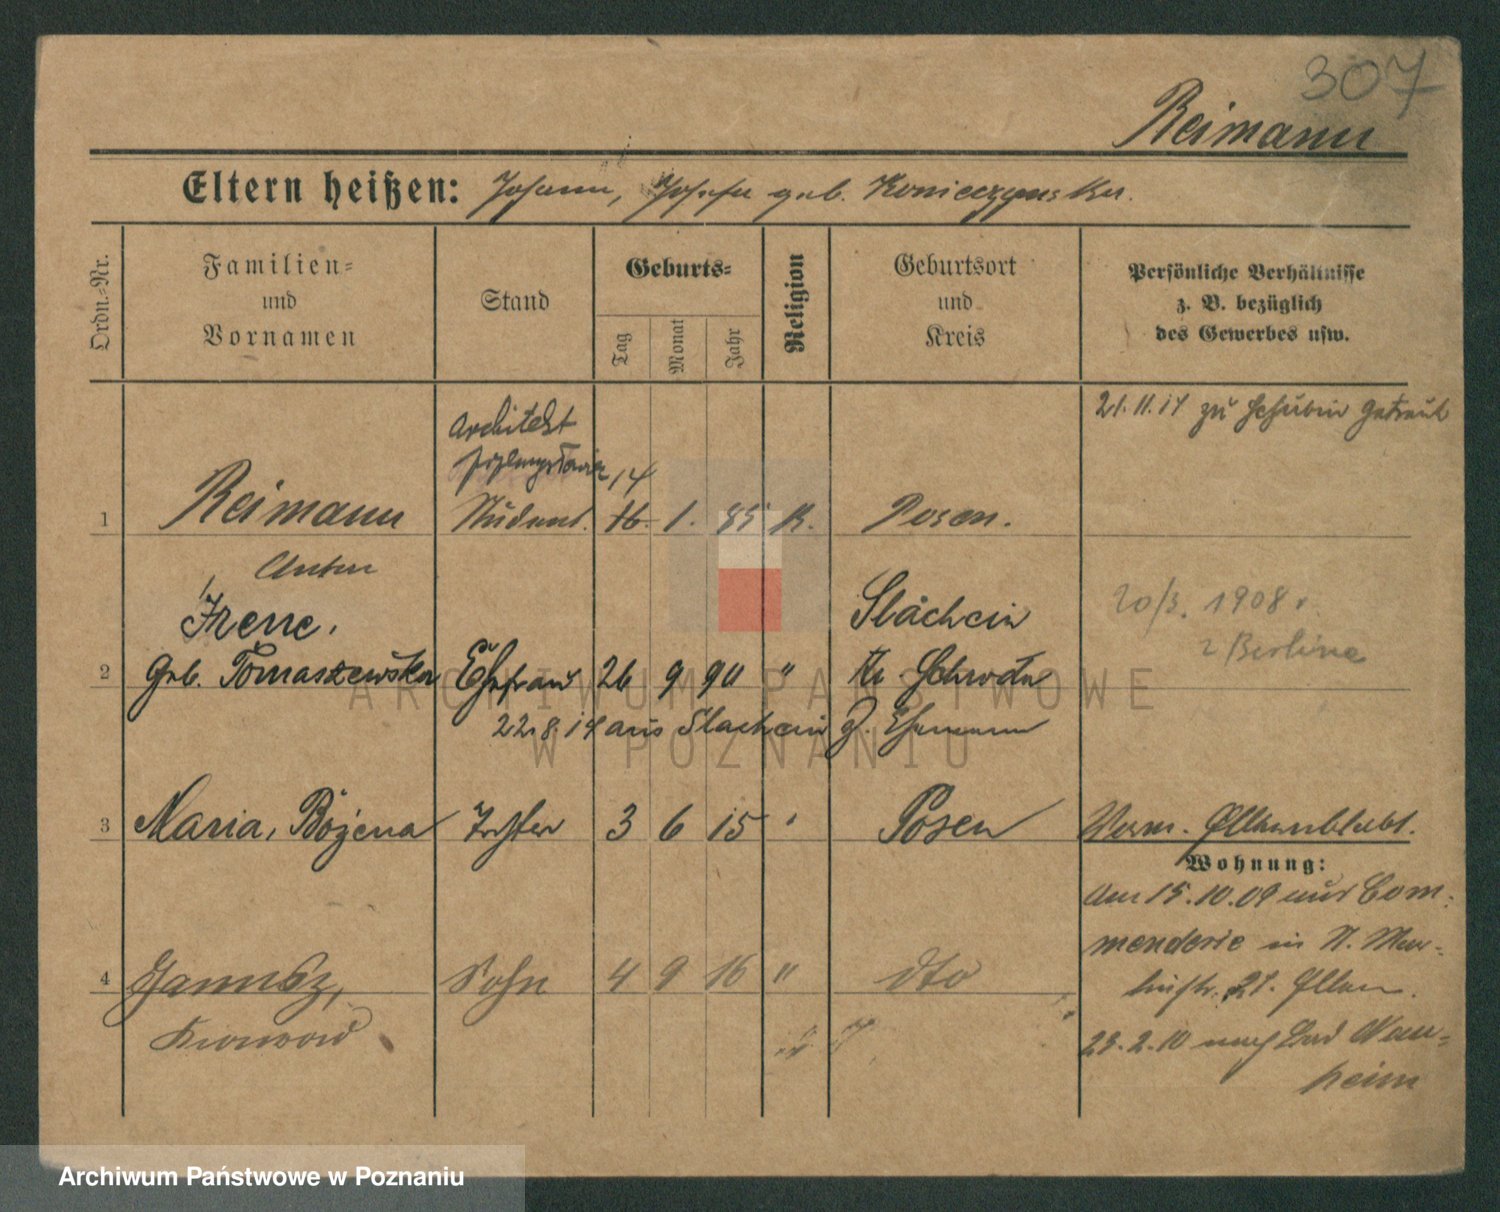 307
Reimann
Eltern heißen: Johann, Josefa geb. Konieczynska.
Ordn.-Nr.
Familien-
und
Vornamen
Stand
Geburts-
Tag
Monat
Jahr
Religion
Geburtsort
und
Kreis
Persönliche Verhältnisse
z. B. bezüglich
des Gewerbes usw.
21.11.14 zu Schubin getraut
Architekt
14
1 Reimann Student. 16. 1. 85 K. Posen.
Anton
Irene,
Slachcin
20/3. 1908 r.
2 geb. Tomaszewska Ehefrau 26 9 90 " Kr. Schroda
z Berlina
22.8.14 aus Slachcin z. Ehemann
3 Maria, Bożena Tochter 3 6 15 " Posen
Wohnung:
Am 15.10.09 aus Com-
menderie in St. Mar-
tinstr. 27.
4 Janusz, Sohn 4 9 16 " dto
23.2.10 nach Bad Nau-
heim
ARCHIWUM PAŃSTWOWE
W POZNANIU
Archiwum Państwowe w Poznaniu